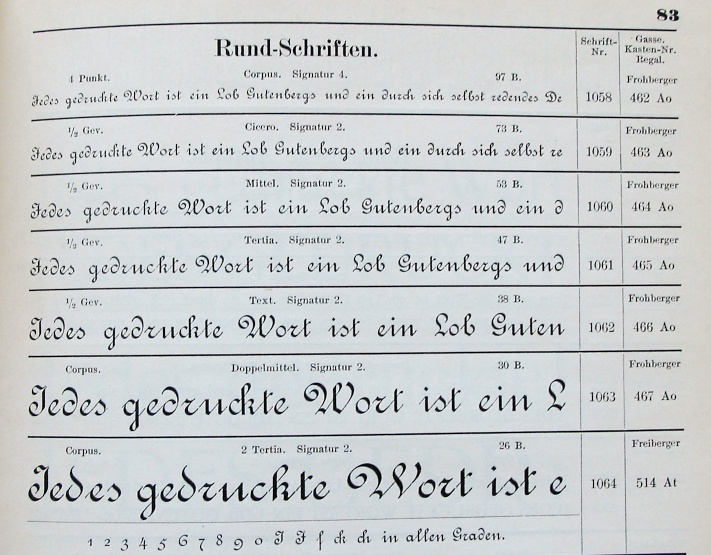 83
Rund-Schriften.
Schrift-Nr.
Gasse. Kasten-Nr. Regal.
4 Punkt. Corpus. Signatur 4. 97 B. Frohberger
Jedes gedruckte Wort ist ein Lob Gutenbergs und ein durch sich selbst redendes De 1058 462 Ao
1/2 Gev. Cicero. Signatur 2. 73 B. Frohberger
Jedes gedruckte Wort ist ein Lob Gutenbergs und ein durch sich selbst re 1059 463 Ao
1/2 Gev. Mittel. Signatur 2. 53 B. Frohberger
Jedes gedruckte Wort ist ein Lob Gutenbergs und ein d 1060 464 Ao
1/2 Gev. Tertia. Signatur 2. 47 B. Frohberger
Jedes gedruckte Wort ist ein Lob Gutenbergs und 1061 465 Ao
1/2 Gev. Text. Signatur 2. 38 B. Frohberger
Jedes gedruckte Wort ist ein Lob Guten 1062 466 Ao
Corpus. Doppelmittel. Signatur 2. 30 B. Frohberger
Jedes gedruckte Wort ist ein L 1063 467 Ao
Corpus. 2 Tertia. Signatur 2. 26 B. Freiberger
Jedes gedruckte Wort ist e 1064 514 At
1 2 3 4 5 6 7 8 9 0 J F f ck ch in allen Graden.